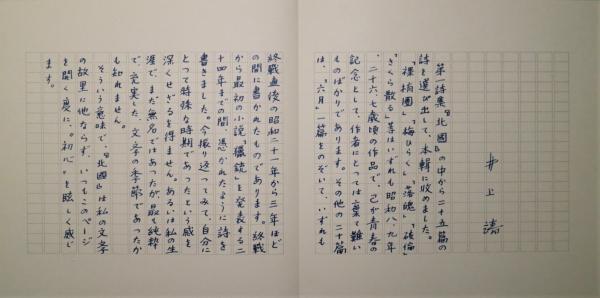 井上靖
第一詩集『北國』の中から二十五篇の
詩を選び出して、本輯に収めました。
「裸梢園」「梅ひらく」「落魄」「破倫」
「さくら散る」等はいずれも昭和八、九年
、二十六、七歳頃の作品で、己が青春の
記念として、作者にとっては棄て難い
ものばかりであります。その他の二十篇
は、「六月」一篇をのぞいて、いずれも
終戦直後の昭和二十一年から三年ほど
の間に書かれたものであります。終戦
から最初の小説「猟銃」を発表する二
十四年までの間、憑かれたように詩を
書きました。今振り返ってみて、自分に
とって特殊な時期であったという感を
深くせざるを得ません。あるいは私の生
涯で、まだ無名ではあったが最も純粋
で、充実した、文学の季節であったか
も知れません。
そういう意味で、『北國』は私の文学
の故里に他ならず、いつもこのページ
を開く度に、"初心"を眩しく感じ
ます。